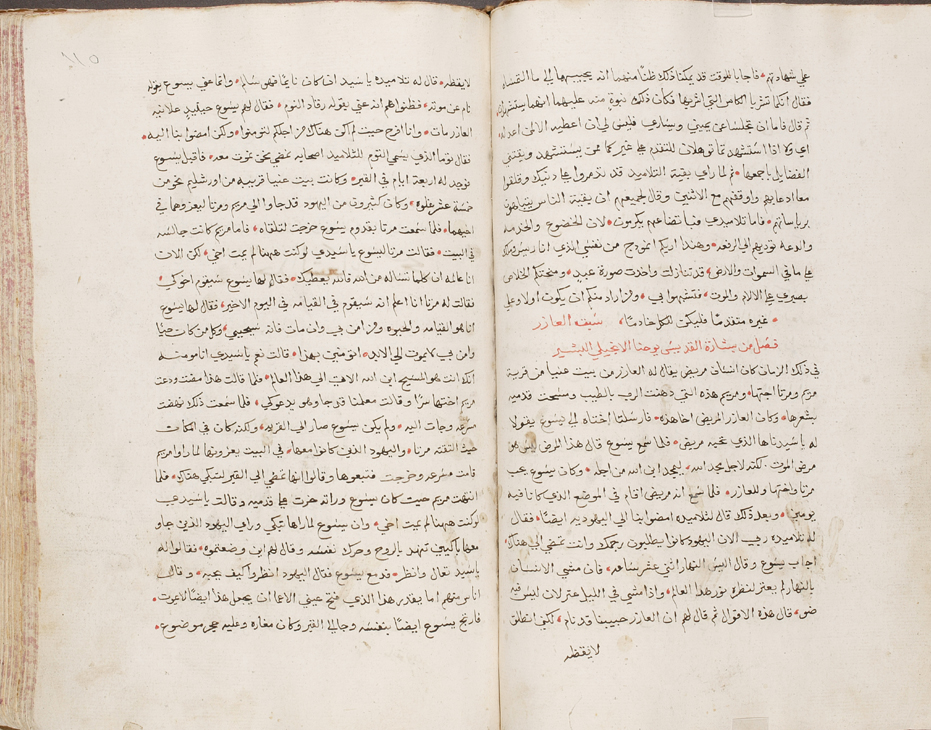 علي شهادتهم فاجابا للوقت قد يمكنا ذلك ظنًا منهما انه يجيبهما الى ما التمساه
فقال انكما تشربا الكاس التي اشربها فكان ذلك نبوة منه عليهما انهما
ثم قال فاما ان تجلسا عن يميني ويساري فليس لي ان اعطيه الا لمن اعد له
اي ولا اذا استشهدتما توهلان للتقدم على غير كما ممن يستشهد ويقتني
الفضايل باجمعها ثم لما راي بقية التلاميذ قد تذمروا على ذنيك وقلقوا
معا ادعا بهم واوقفهم مع الاثنين وقال لجميعهم ان بقية الناس
برياساتهم فاما تلاميذي فباتضاعهم يكرمون لان الخضوع والخدمه
والدعه توديهم الى الرفعه وهذا اريكم انموذج من نفسي الذي انا ريس
على ما في السموات والارض قد تنازلت واخذت صورة عبد ومنحتكم الخلاص
بصبري على الالام والموت فتشبهوا بي ومن اراد منكم ان يكون اولا وعلي
غيره متقدمًا فليكن للكل خادمًا سبت العازر
فصل من بشارة القديس يوحنا الانجيلي البشير
في ذلك الزمان كان انسان مريض يقال له العازر من بيت عنيا من قرية
مريم ومرتا اختها ومريم هذه التي دهنت الرب بالطيب ومسحت قدميه
بشعرها وكان العازر المريض اخا هذه فارسلتا اختاه الى يسوع يقولا
له يا سيد ها الذي تحبه مريض فلما سمع يسوع قال هذا المرض ليس هو
مرض الموت لكنه لاجل مجد الله ليمجد ابن الله من اجله وكان يسوع يحب
مرتا واختها والعازر فلما سمع انه مريض اقام في الموضع الذي كان فيه
يومين وبعد ذلك قال لتلاميذه امضوا بنا الى اليهوديه ايضًا فقال
له تلاميذه ربي الان اليهود كانوا يطلبون رجمك وانت تمضي الى هناك
اجاب يسوع وقال اليس النهار اثنى عشر ساعه فان مشي الانسان
بالنهار لم يعثر لنظره نور هذا العالم واذا مشى في الليل عثر لان ليس فيه
ضو قال هذه الاقوال ثم قال لهم ان العازر حبيبنا قد نام لكني انطلق
لايقظه
لايقظه قال له تلاميذه يا سيد ان كان نايمًا فهو سالم وانما عني يسوع بقوله
نام عن موته فظنوا هم انه عني بقوله رقاد النوم فقال لهم يسوع حينيذ علانيه
العازر مات وانا افرح حيث لم اكن هناك من اجلكم لتومنوا ولكن امضوا بنا اليه
فقال توما الذي يسمى التوم للتلاميذ اصحابه نمضي نحن نموت معه فاقبل يسوع
فوجد له اربعة ايام في القبر وكانت بيت عنيا قريبه من اورشليم نحو من
خمسة عشر غلوه وكان كثيرون من اليهود قد جاوا الى مريم ومرتا ليعزوهما في
اخيهما فلما سمعت مرتا بقدوم يسوع خرجت لتلقاه فاما مريم كانت جالسه
في البيت فقالت مرتا ليسوع يا سيدي لو كنت هاهنا لم يمت اخي لكن الان
انا عالمه ان كلما تساله من الله فالله يعطيك فقال لها يسوع سيقوم اخوكي
فقالت له مرتا انا اعلم انه سيقوم في القيامه في اليوم الاخير فقال لها يسوع
انا هو القيامه والحيوه ومن امن بي وان مات فانه سيحيى وكل من كان حيًا
وامن بي لا يموت الى الابد اتومني بهذا قالت نعم يا سيدي انا مومنه
انك انت هو المسيح ابن الله الاتي الى هذا العالم فلما قالت هذا مضت ودعت
مريم اختها سرًا وقالت معلمنا قد جا وهو يدعوكي فلما سمعت ذلك نهضت
سرعه وجات اليه ولم يكن يسوع صار الى القريه ولكنه كان في المكان
حيث التقته مرتا واليهود الذين كانوا معها في البيت يعزونها لما راوا مريم
قامت مسرعه وخرجت فتبعوها وقالوا انها تمضي الى القبر لتبكي هناك فلما
انتهت مريم حيث كان يسوع وراته خرت على قدميه وقالت يا سيدي
لو كنت ههنا لم يمت اخي وان يسوع لما راها تبكي وراي اليهود الذين جاو
معها باكيين تنهد بالروح وحرك نفسه وقال لهم اين وضعتموه فقالوا له
يا سيد تعال وانظر فدمع يسوع فقال اليهود انظروا كيف يحبه وقال
اناس منهم اما يقدر هذا الذي فتح عيني الاعما ان يجعل هذا ايضًا لا يموت
فارتج يسوع ايضًا بنفسه وجا الى القبر وكان مغاره وعليه حجر موضوع